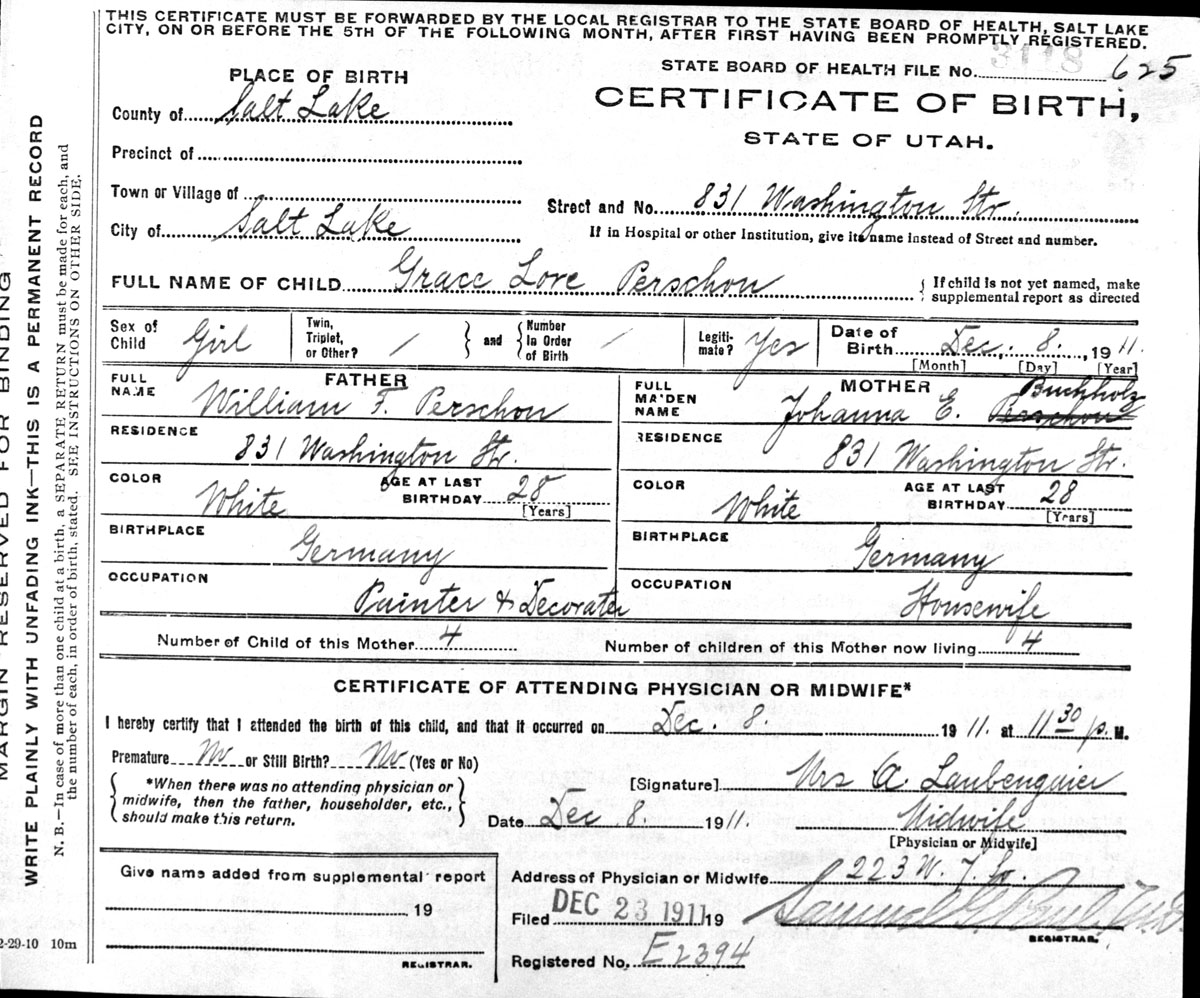 THIS CERTIFICATE MUST BE FORWARDED BY THE LOCAL REGISTRAR TO THE STATE BOARD OF HEALTH, SALT LAKE
CITY, ON OR BEFORE THE 5TH OF THE FOLLOWING MONTH, AFTER FIRST HAVING BEEN PROMPTLY REGISTERED.
STATE BOARD OF HEALTH FILE No. 3118 625
PLACE OF BIRTH
CERTIFICATE OF BIRTH,
STATE OF UTAH.
County of Salt Lake
Precinct of
Town or Village of
Street and No. 831 Washington Str.
City of Salt Lake
If in Hospital or other Institution, give its name instead of Street and number.
FULL NAME OF CHILD Grace Love Perschon
If child is not yet named, make
supplemental report as directed
Sex of
Child Girl
Twin,
Triplet,
or Other? /
and
Number
In Order
of Birth /
Legiti-
mate? Yes
Date of
Birth Dec. 8. , 19 11.
[Month] [Day] [Year]
FATHER
FULL
NAME William F. Perschon
RESIDENCE
831 Washington Str.
COLOR White
AGE AT LAST
BIRTHDAY 28
[Years]
BIRTHPLACE
Germany
OCCUPATION
Painter & Decorater
MOTHER
FULL
MAIDEN
NAME Johanna E. Perschon Buchholz
RESIDENCE
831 Washington Str.
COLOR White
AGE AT LAST
BIRTHDAY 28
[Years]
BIRTHPLACE
Germany
OCCUPATION
Housewife
Number of Child of this Mother 4
Number of children of this Mother now living 4
CERTIFICATE OF ATTENDING PHYSICIAN OR MIDWIFE*
I hereby certify that I attended the birth of this child, and that it occurred on Dec. 8. 19 11. at 11 30 p. M.
Premature No or Still Birth? No (Yes or No)
*When there was no attending physician or
midwife, then the father, householder, etc.,
should make this return.
[Signature] Mrs A
Date Dec 8. 19 11.
Midwife
[Physician or Midwife]
Give name added from supplemental report
19
REGISTRAR.
Address of Physician or Midwife 223 W.
Filed DEC 23 1911 19
Samuel G.
REGISTRAR.
Registered No. E2394
MARGIN RESERVED FOR BINDING
WRITE PLAINLY WITH UNFADING INK—THIS IS A PERMANENT RECORD
N. B.—In case of more than one child at a birth, a SEPARATE RETURN must be made for each, and
the number of each, in order of birth, stated. SEE INSTRUCTIONS ON OTHER SIDE.
2-29-10 10m